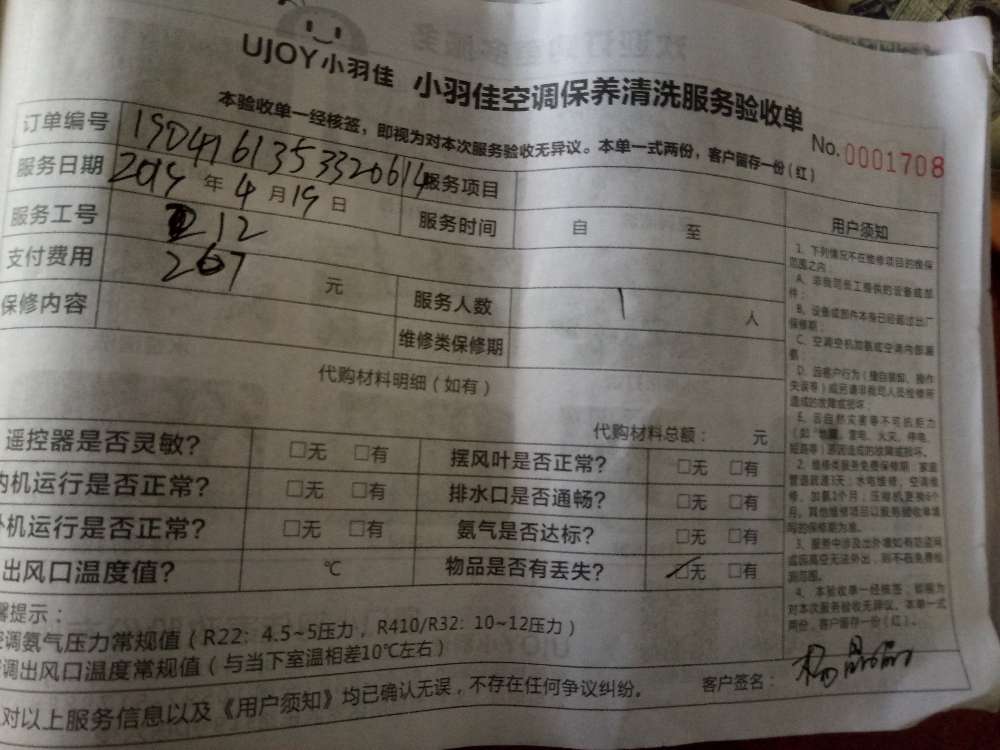 UJOY小羽佳 小羽佳空调保养清洗服务验收单
本验收单一经核签，即视为对本次服务验收无异议。本单一式两份，客户留存一份(红)
No.0001708
订单编号 190416135332061 服务项目
服务日期 2019 年 4 月 19 日 服务时间 自 至
服务工号 212
支付费用 267 元 服务人数 1 人
保修内容 维修类保修期
代购材料明细（如有）
代购材料总额： 元
遥控器是否灵敏？ □无 □有 摆风叶是否正常？ □无 □有
内机运行是否正常？ □无 □有 排水口是否通畅？ □无 □有
外机运行是否正常？ □无 □有 氨气是否达标？ □无 □有
出风口温度值？ ℃ 物品是否有丢失？ □无 □有
用户须知
1、下列情况不在维修项目的修保
范围之内：
A、非我司员工提供的设备或部
件；
B、设备或部件本身已经超过出厂
保修期；
C、空调空机加氨或空调内部漏
氨；
D、因客户行为（擅自装卸、操作
失误等）或另请非我司人员维修所
造成的故障或损坏；
E、因自然灾害等不可抗拒力
（如 地震、雷电、火灾、停电、
短路等）原因造成的故障或损坏。
2、维修类服务免费保修期：家庭
管道疏通3天；水电维修、空调维
修、加氨1个月，压缩机更换6个
月。其他维修项目以服务验收单填
写的保修期为准。
3、服务中涉及出外墙如有防盗网
或因高空无法外出，则不在免费检
测范围。
4、本验收单一经核签，即视为
对本次服务验收无异议。本单一式
两份，客户留存一份（红）。
馨提示：
空调氨气压力常规值（R22：4.5~5压力，R410/R32：10~12压力）
空调出风口温度常规值（与当下室温相差10℃左右）
对以上服务信息以及《用户须知》均已确认无误，不存在任何争议纠纷。
客户签名： 杨晶晶